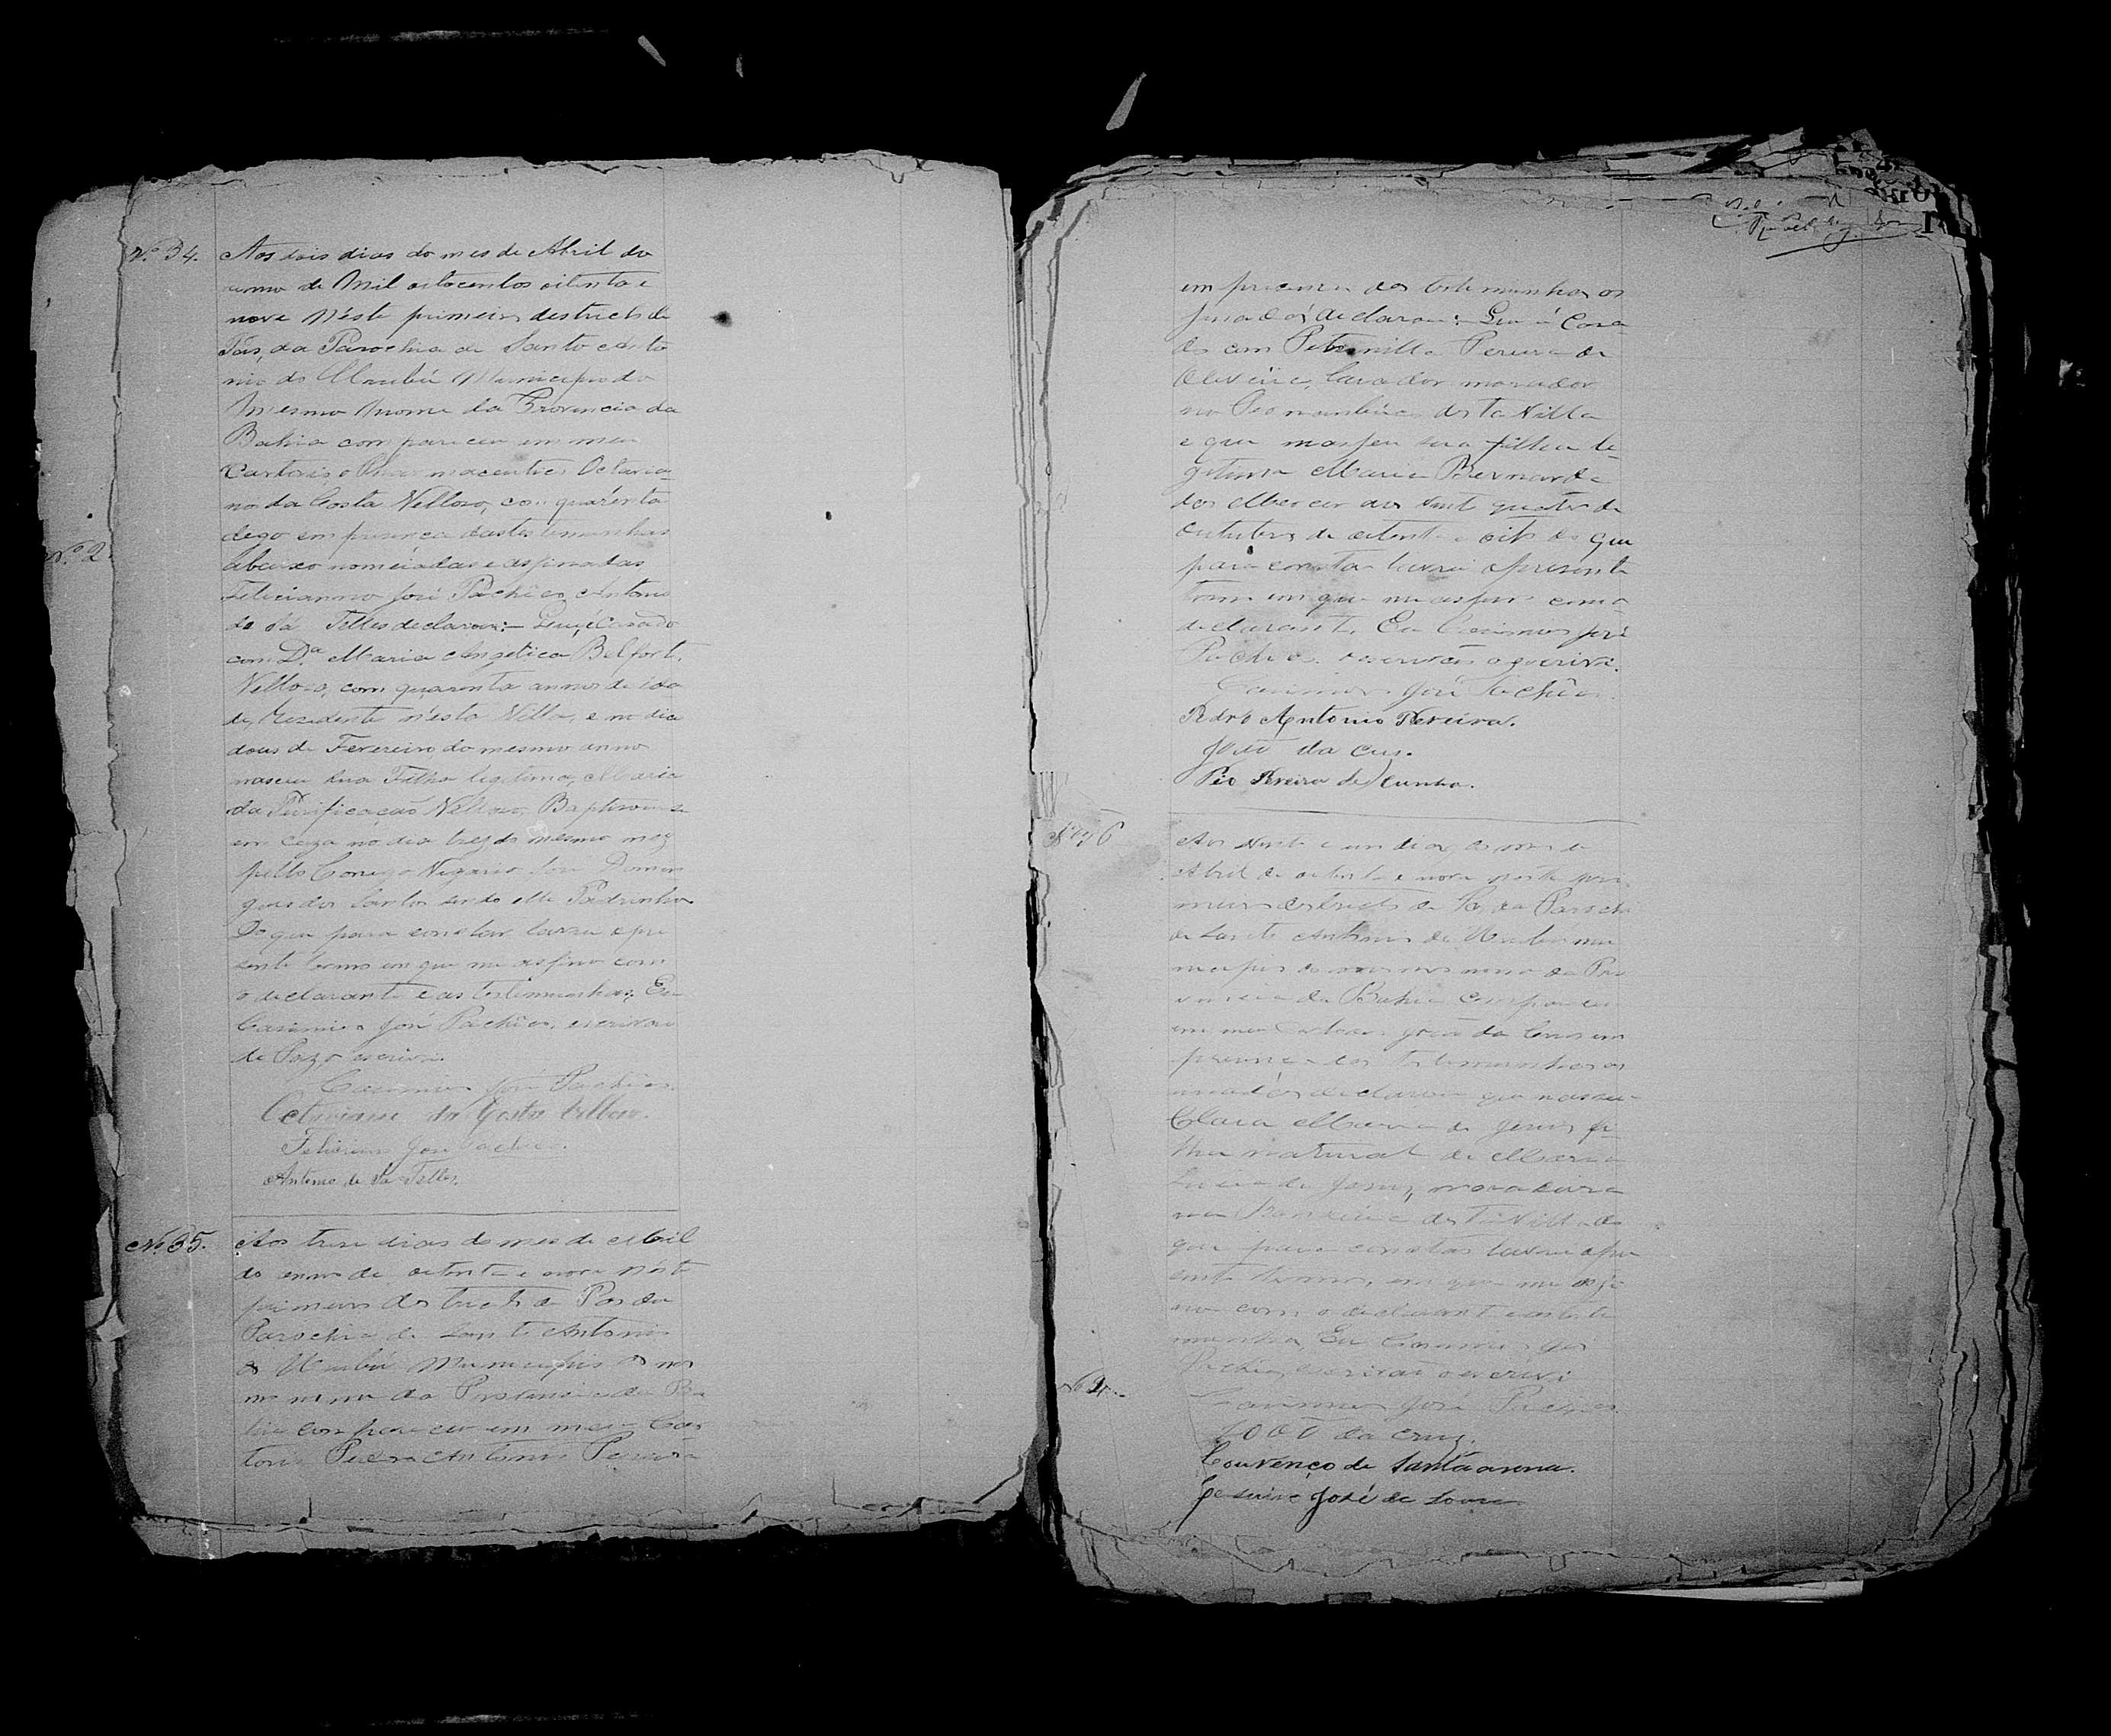 Nº 34. Aos dois dias do mes de Abril do
anno de Mil oitocentos oitenta e
nove néste primeiro destricto de
Pás, da Parochia de Santo Anto
nio do Urubú Municipio do
Mesmo nome da Provincia da
Bahia compareceu em meu
Cartorio o Octavia
no da Costa Velloso, com quarenta
digo em presença das testemunhas
Abaixo nomeiadas e assinadas
Felicianno José Pachêco Antonio
de Sá Telles declarou: Que é Casado
com D.ª Maria Angelica Belfort.
Velloso, com quarenta annos de ida
de, Rezidente n'ésta Villa, e no dia
dous de Fevereiro do mesmo anno
nasceu sua Filha legitima, Maria
da Purificação Velloso, Baptisou-se
em Caza no dia trez do mesmo mez
pello Conego Vigario José Domin
gues dos Santos sendo elle Padrinho
Do que para constar lavrei o pre
sente termo em que me assino com
o declarante e as testemunhas, Eu
Casimiro José Pachêco, escrivão
de Paz, o escrivi.
Casimiro José Pachêco.
Octaviano da Costa Velloso.
Feliciano José Pacheco.
Antonio de Sá Telles.
Nº 35. Aos trese dias do mes de Abril
do anno de oitenta e nove nésta
primeiro destricto de Pas da
Parochia de Santo Antonio
do Urubú Municipio do mes
mo nome da Provincia da Ba
hia compareceu em meu Car
torio Pedro Antonio Pereira
Nº 2
em presença das testemunhas as
sinadas declarou: Que é Casa
do com Petronilla Pereira de
Oliveira, lavrador morador
no desta Villa
e que nasseu sua filha le
gitima Maria Bernarda
das Merces aos vint quatro de
outubro de oitenta e oito do que
para constar lavrei o presente
termo em que me assino com o
declarante. Eu Casimiro José
Pachêco. escrivão o escrivi.
Casimiro José Pachêco.
Pedro Antonio Pereira.
João da Cus.
Pio Pereira de Cunha.
Aos vinte e um dias do mes de
Abril de oitenta e nove neste pri
meiro destricto de Pas da Parochia
de Santo Antonio do Urubú mu
nicipio do mesmo nome da Pro
vincia da Bahia compareceu
em meu Cartorio João da Crus em
presença das testemunhas as
sinadas declarou que nasceu
Clara Maria de Jesus fi
lha natural de Maria
Lucia de Jesus, moradora
na desta Villa do
que para constar lavrei o pre
sente termo, em que me assi
no com o declarante e as teste
munhas, Eu Casimiro José
Pachêco, escrivão o escrivi
Casimiro José Pachêco.
João da Cruz.
Lourenço de Santa anna.
José de Souza